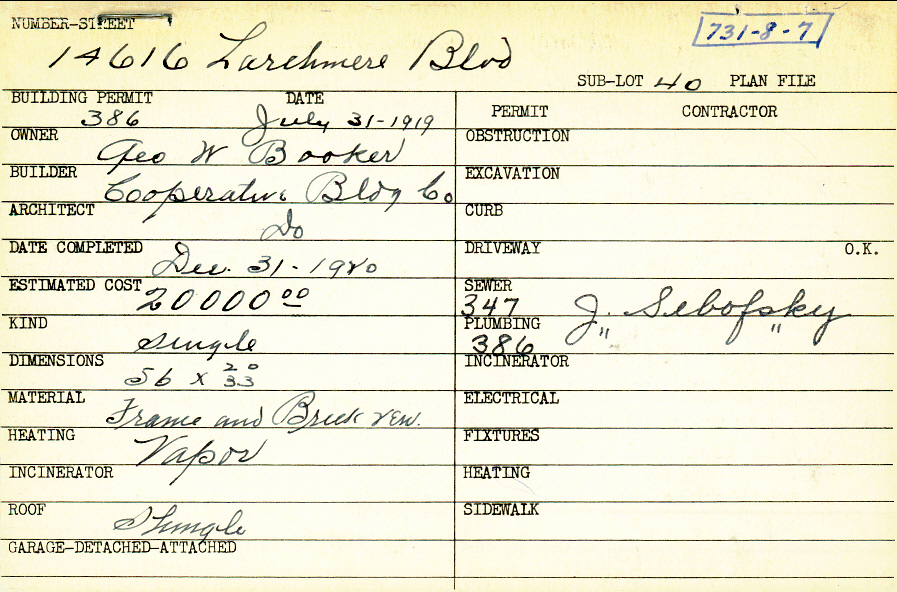 NUMBER-STREET
731-8-7
14616 Larchmere Blvd
SUB-LOT 40 PLAN FILE
BUILDING PERMIT DATE
386 July 31-1919
OWNER Geo W Booker
BUILDER Cooperative Bldg Co
ARCHITECT Do
DATE COMPLETED Dec. 31-1920
ESTIMATED COST 20000 00
KIND Single
DIMENSIONS 56 x 20 33
MATERIAL Frame and Brick ven.
HEATING Vapor
INCINERATOR
ROOF Shingle
GARAGE-DETACHED-ATTACHED
PERMIT CONTRACTOR
OBSTRUCTION
EXCAVATION
CURB
DRIVEWAY O.K.
SEWER
347 J. Sebofsky
PLUMBING
386 " "
INCINERATOR
ELECTRICAL
FIXTURES
HEATING
SIDEWALK